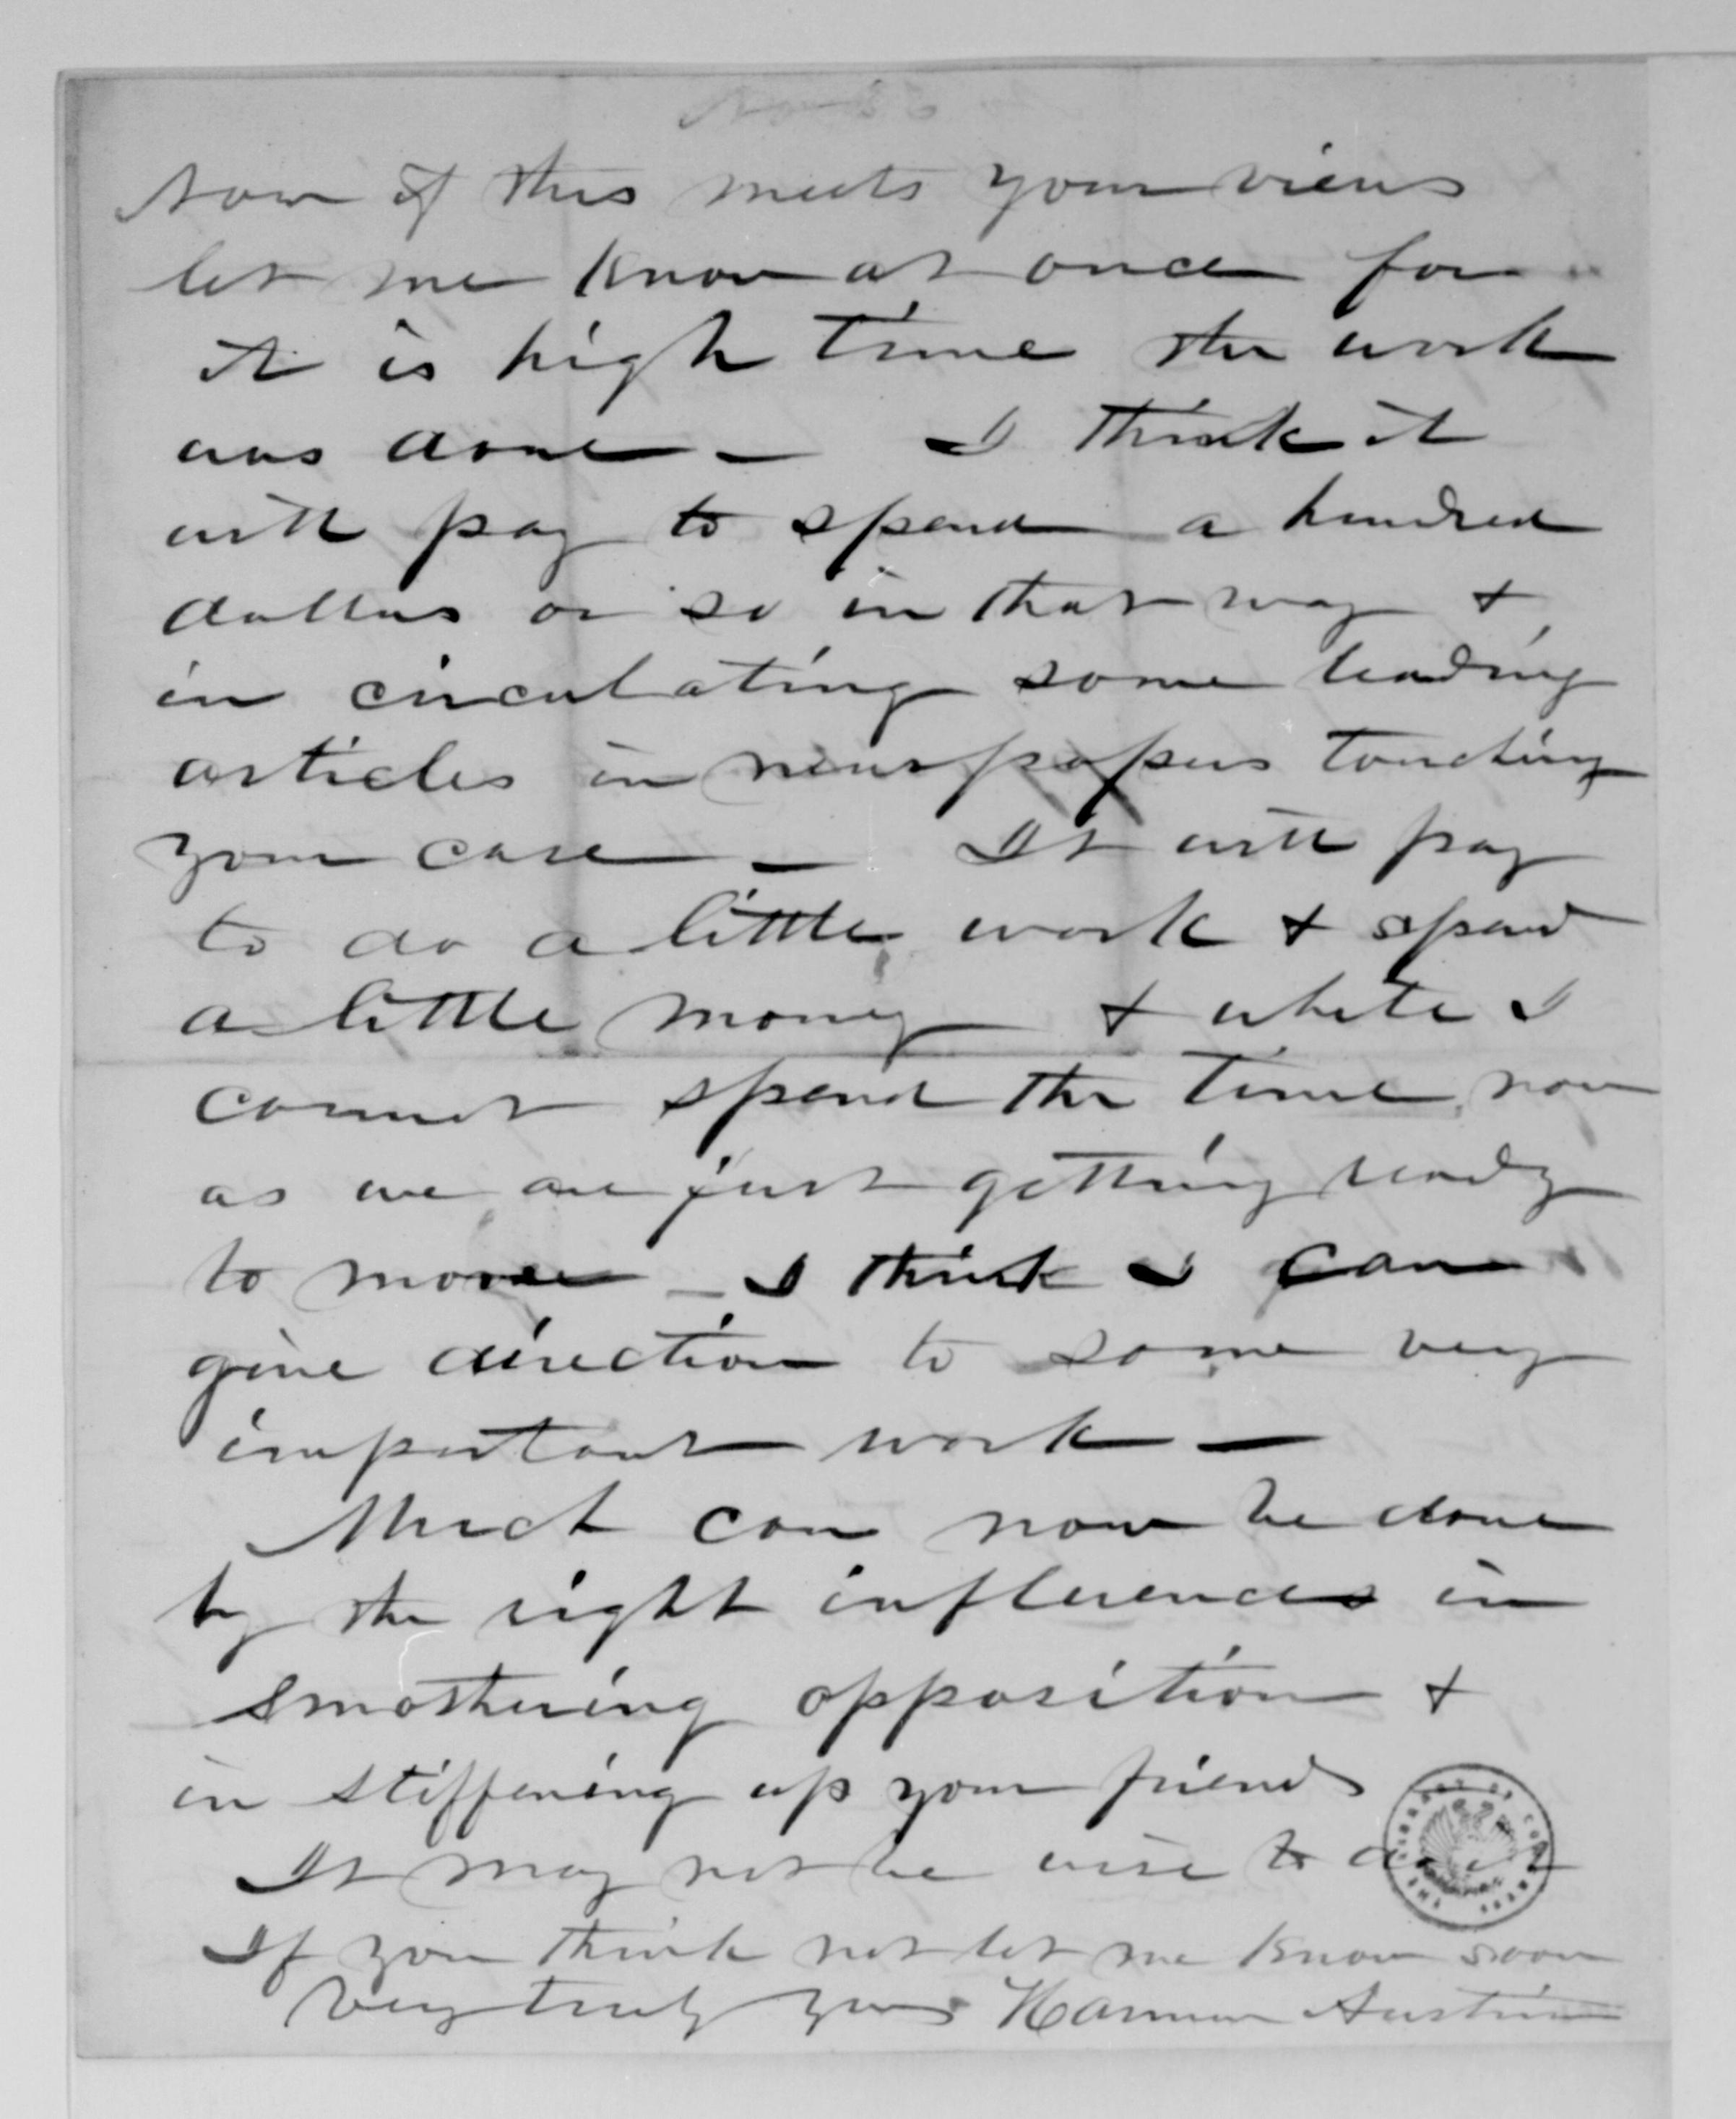 Now if this meets your views
let me know at once for
it is high time the work
was done — I think it
will pay to spend a hundred
dollars or so in that way &
in circulating some leading
articles in newspapers touching
your case — It will pay
to do a little work & spend
a little money & while I
cannot spend the time now
as we are just getting ready
to move — I think I can
give direction to some very
important work —
Much can now be done
by the right influences in
smothering opposition &
in stiffening up your friends
It may not be wise to
If you think not let me know soon
Very truly yours Harmon Austin